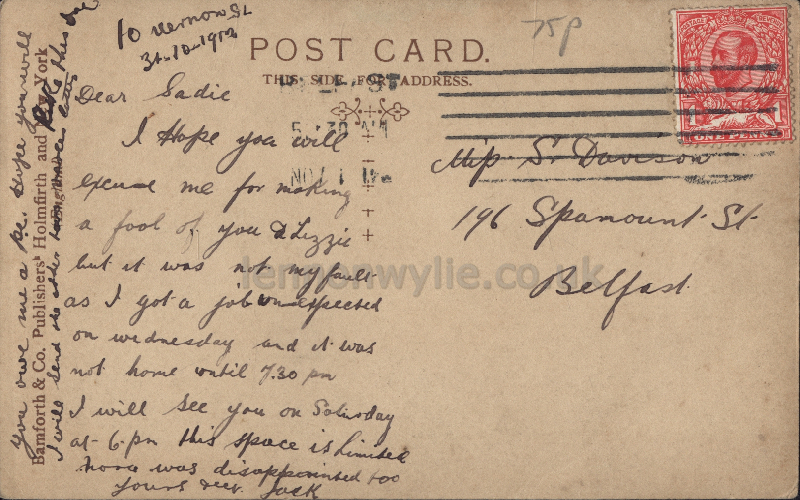 10 Vernon St
31-10-1912
75p
POST CARD.
THIS SIDE FOR ADDRESS.
Dear Sadie
I Hope you will
excuse me for making
a fool of you & Lizzie
but it was not my fault
as I got a job unexpected
on wednesday and it was
not home until 7.30 pm
I will see you on Saturday
at 6.pm this space is limited
nora was disappointed too
yours
Jack
Miss S. Davison
196 Spamount St
Belfast
5 30 AM
NO 1 12
ONE PENNY
you owe me a pc. Hope you will
Bamforth & Co. Publishers Holmfirth and New York
I will send the other
lennonwylie.co.uk